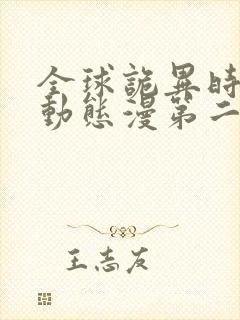 全球詭異時
動態漫第二
王志友